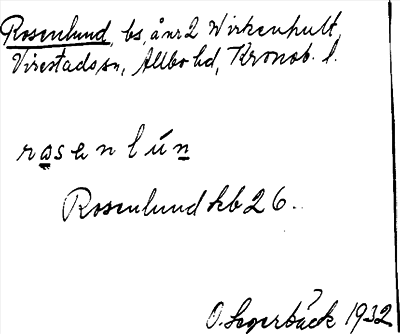 Rosenlund, bs, å nr 2 Wirkenhult,
Virestads sn, Allbo hd, Kronob. l.
rosenlún
Rosenlund kb 26.
O. Segerbäck 1932